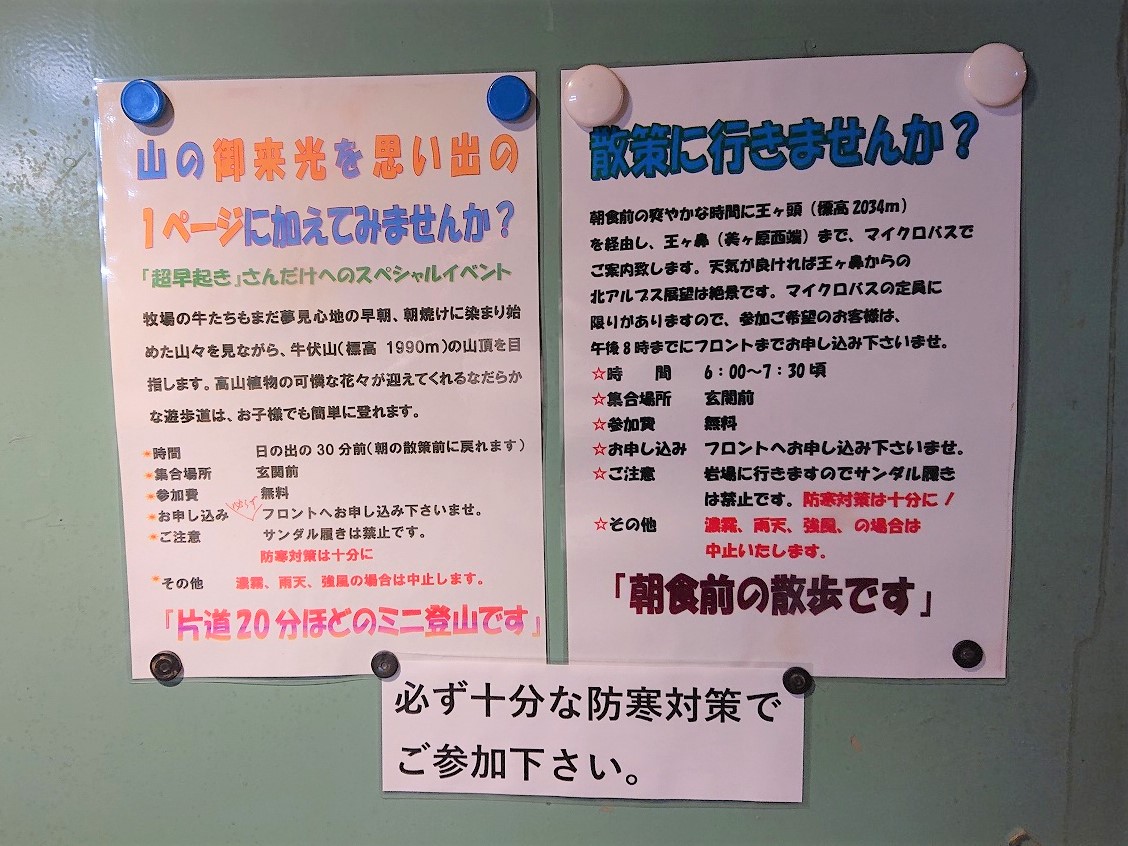 山の御来光を思い出の
1ページに加えてみませんか？
「超早起き」さんだけへのスペシャルイベント
牧場の牛たちもまだ夢見心地の早朝、朝焼けに染まり始
めた山々を見ながら、牛伏山（標高 1990m）の山頂を目
指します。高山植物の可憐な花々が迎えてくれるなだらか
な遊歩道は、お子様でも簡単に登れます。
時間 日の出の30分前（朝の散策前に戻れます）
集合場所 玄関前
参加費 無料
お申し込み フロントへお申し込み下さいませ。
ご注意 サンダル履きは禁止です。
防寒対策は十分に
その他 濃霧、雨天、強風の場合は中止します。
「片道20分ほどのミニ登山です」
散策に行きませんか？
朝食前の爽やかな時間に王ヶ頭（標高2034m）
を経由し、王ヶ鼻（美ヶ原西端）まで、マイクロバスで
ご案内致します。天気が良ければ王ヶ鼻からの
北アルプス展望は絶景です。マイクロバスの定員に
限りがありますので、参加ご希望のお客様は、
午後8時までにフロントまでお申し込み下さいませ。
☆時 間 6：00～7：30頃
☆集合場所 玄関前
☆参加費 無料
☆お申し込み フロントへお申し込み下さいませ。
☆ご注意 岩場に行きますのでサンダル履き
は禁止です。防寒対策は十分に！
☆その他 濃霧、雨天、強風、の場合は
中止いたします。
「朝食前の散歩です」
必ず十分な防寒対策で
ご参加下さい。